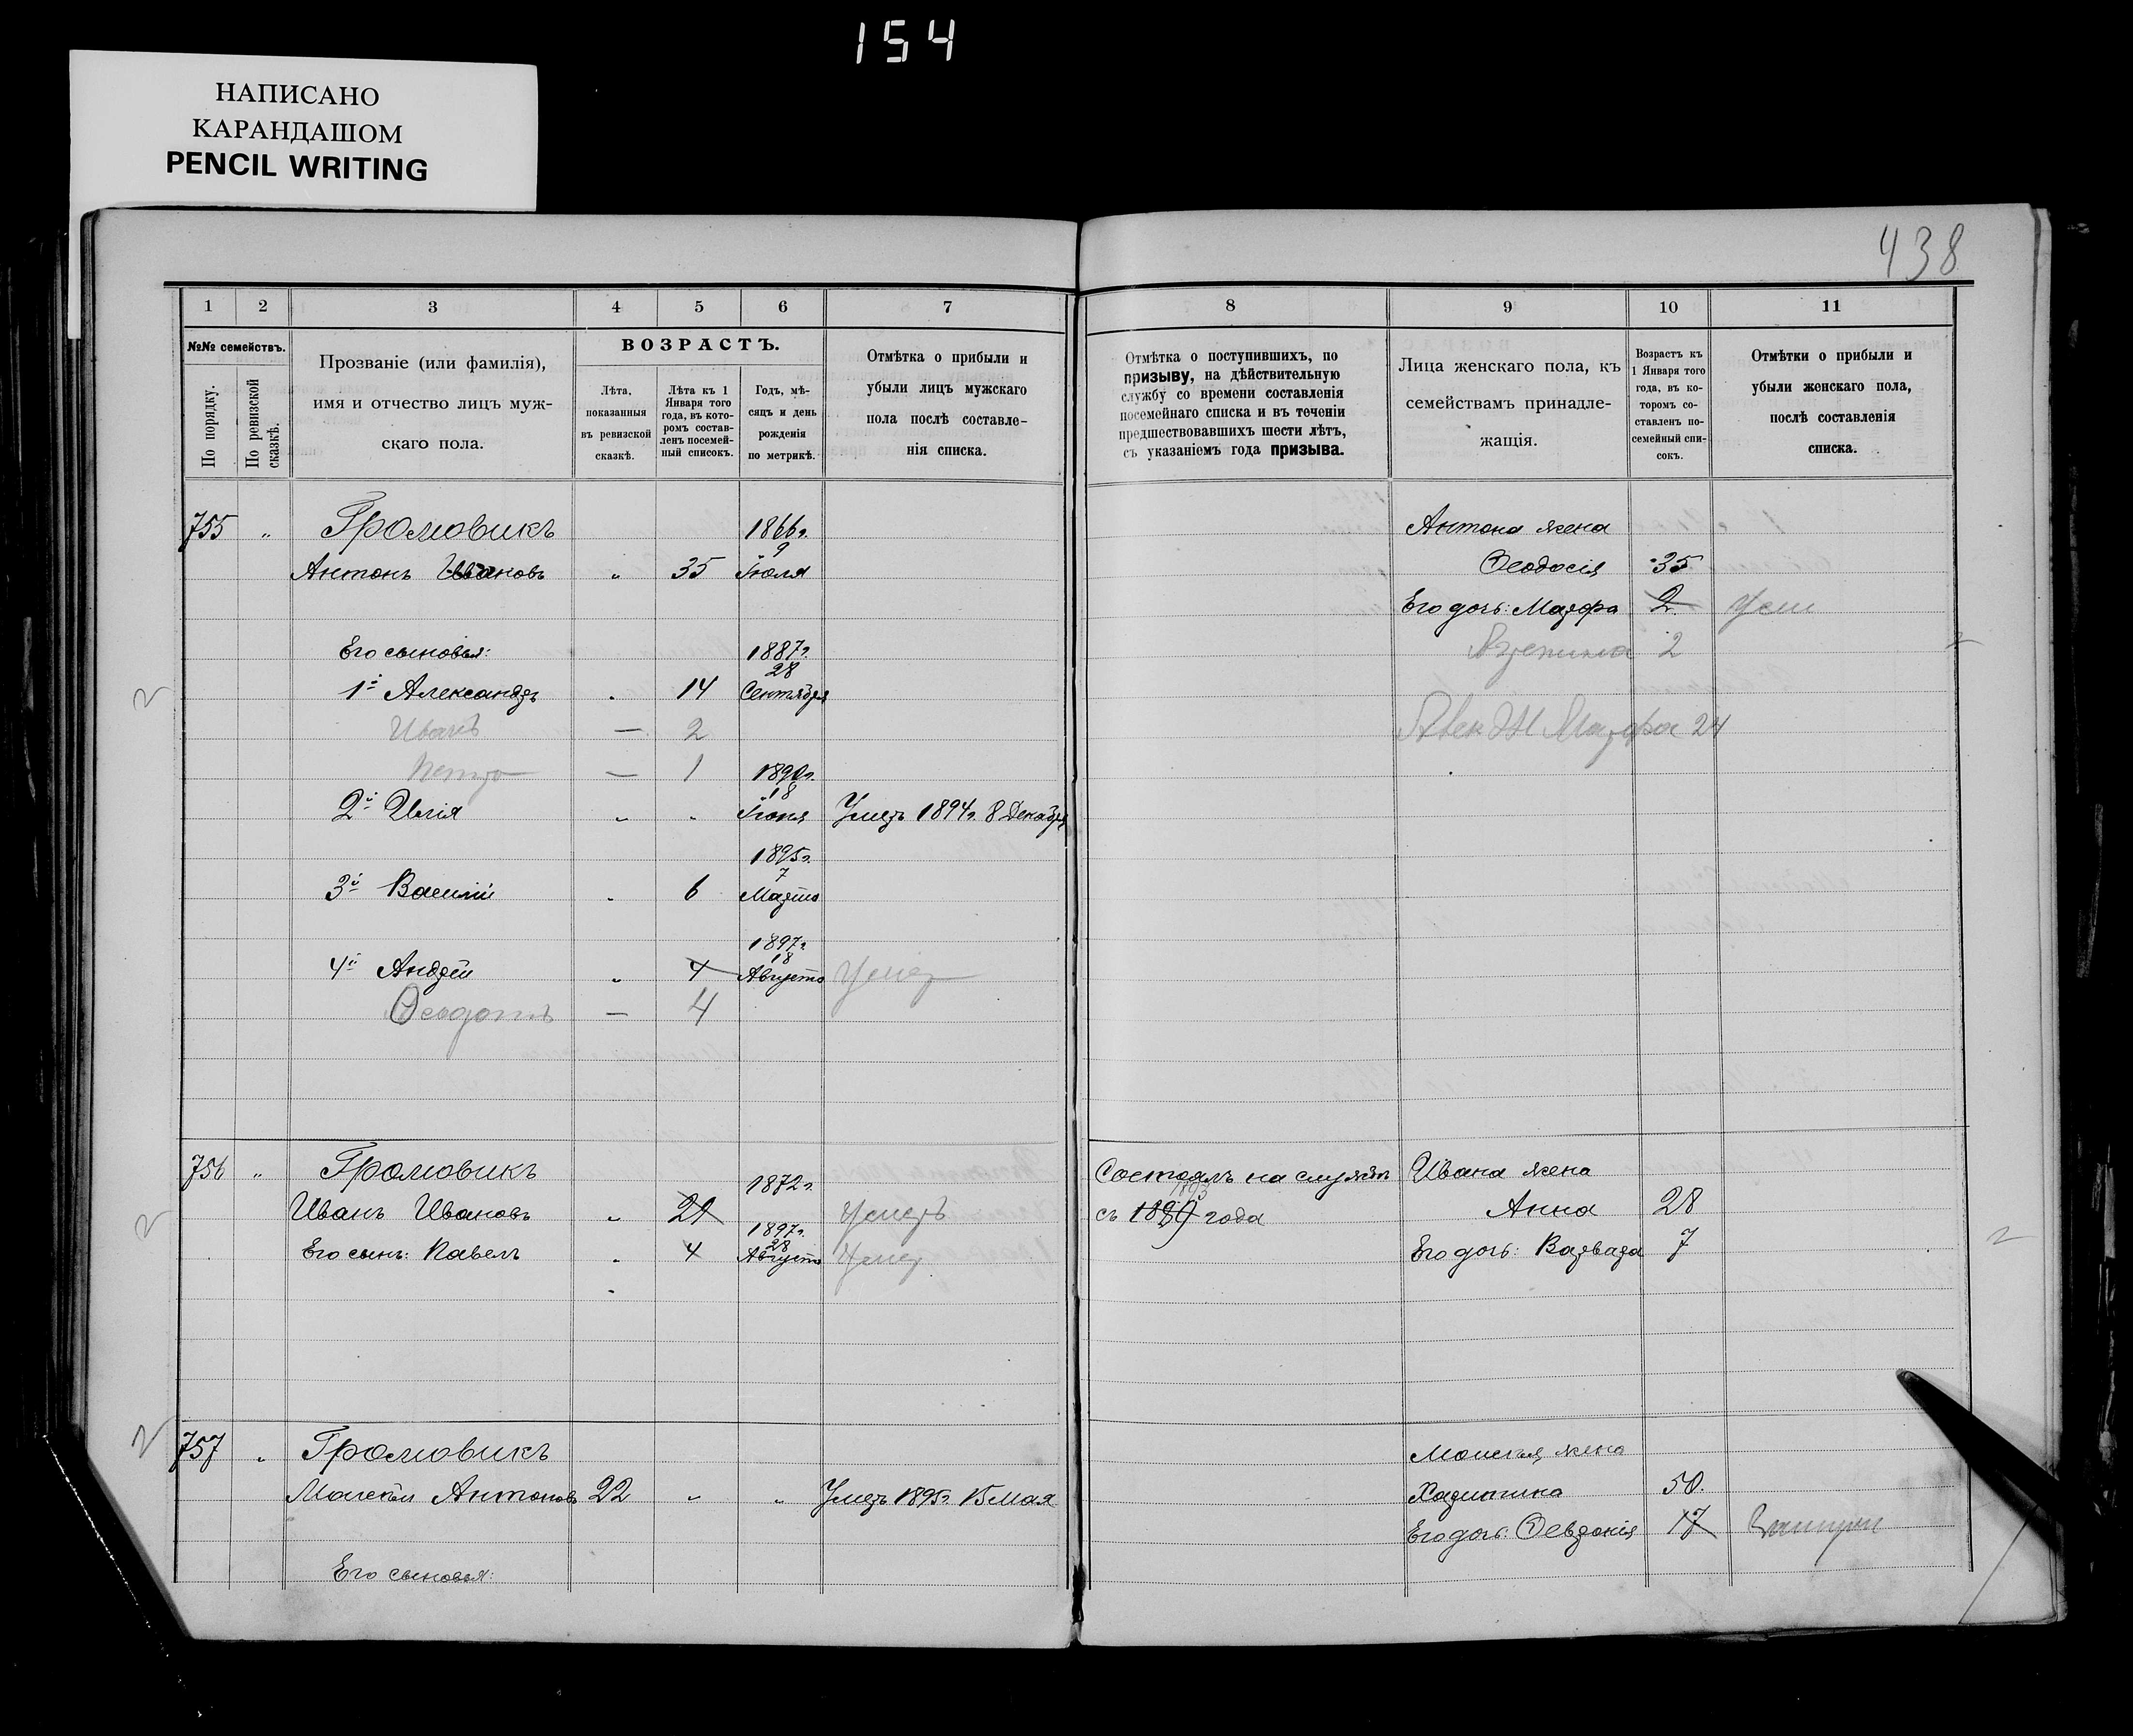 154
НАПИСАНО
КАРАНДАШОМ
PENCIL WRITING
438
1 2 3 4 5 6 7
№№ семействъ.
По порядку.
По ревизской сказкѣ.
Прозваніе (или фамилія),
имя и отчество лицъ муж-
скаго пола.
ВОЗРАСТЪ.
Лѣта,
показанныя
въ ревизской
сказкѣ.
Лѣта къ 1
Января того
года, въ кото-
ромъ состав-
ленъ посемей-
ный списокъ.
Годъ, мѣ-
сяцъ и день
рожденія
по метрикѣ.
Отмѣтка о прибыли и
убыли лицъ мужскаго
пола послѣ составле-
нія списка.
755 „ Громовикъ 1866г.
9
Антонъ Ивановъ „ 35 Іюля
Его сыновья: 1887г.
28
1й Александръ „ 14 Сентября
Иванъ — 2
Петръ — 1 1890г.
18
2й Илія „ „ Іюня Умеръ 1894г. 8 Декабря
1895г.
7
3й Василій „ 6 Марта
1897г.
18
4й Андрей „ 4 Августа Умер
Феодотъ — 4
756 „ Громовикъ 1872г.
Иванъ Ивановъ „ 29 Умеръ
1897г.
28
Его сынъ: Павелъ „ 4 Августа Умер
757 „ Громовикъ
Моисей Антоновъ 22 „ „ Умеръ 1895г. 15 Мая
Его сыновья:
8 9 10 11
Отмѣтка о поступившихъ, по
призыву, на дѣйствительную
службу со времени составленія
посемейнаго списка и въ теченіи
предшествовавшихъ шести лѣтъ,
съ указаніемъ года призыва.
Лица женскаго пола, къ
семействамъ принадле-
жащія.
Возрастъ къ
1 Января того
года, въ ко-
торомъ со-
ставленъ по-
семейный спи-
сокъ.
Отмѣтки о прибыли и
убыли женскаго пола,
послѣ составленія
списка.
Антона жена
Ѳеодосія 35
Его дочь: Марфа 2 Умер
2
Алек Ж Марфа 24
Состоялъ на службѣ Ивана жена
1893
съ 1889 года Анна 28
Его дочь: Варвара 7
Моисея жена
Харитина 50.
Его дочь: Ѳевронія 17